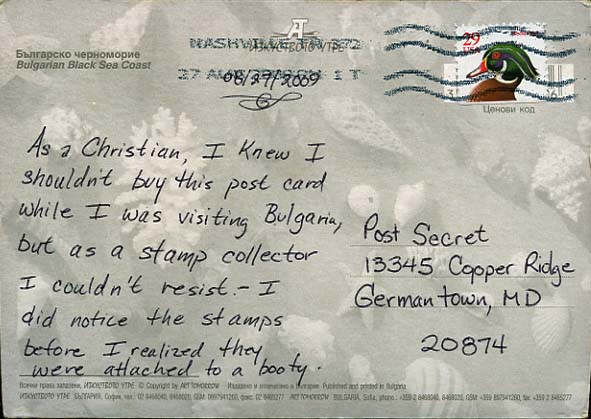 Българско черноморие
Bulgarian Black Sea Coast
ИЗКУСТВОТО УТРЕ
NASHVILLE
27 AUG
08/27/2009
29
USA
Ценови код
As a Christian, I Knew I
shouldn't buy this post card
while I was visiting Bulgaria,
but as a stamp collector
I couldn't resist. - I
did notice the stamps
before I realized they
were attached to a booty.
Post Secret
13345 Copper Ridge
Germantown, MD
20874
Всички права запазени, ИЗКУСТВОТО УТРЕ © Copyright by ART TOMORROW Издадено и отпечатано в България Published and printed in Bulgaria
ИЗКУСТВОТО УТРЕ БЪЛГАРИЯ, София, тел.: 02 8468040, 8468020, GSM: 0897941260, факс: 02 8465277 ART TOMORROW BULGARIA, Sofia, phone.: +359 2 8468040, 8468020, GSM: +359 897941260, fax: +359 2 8465277